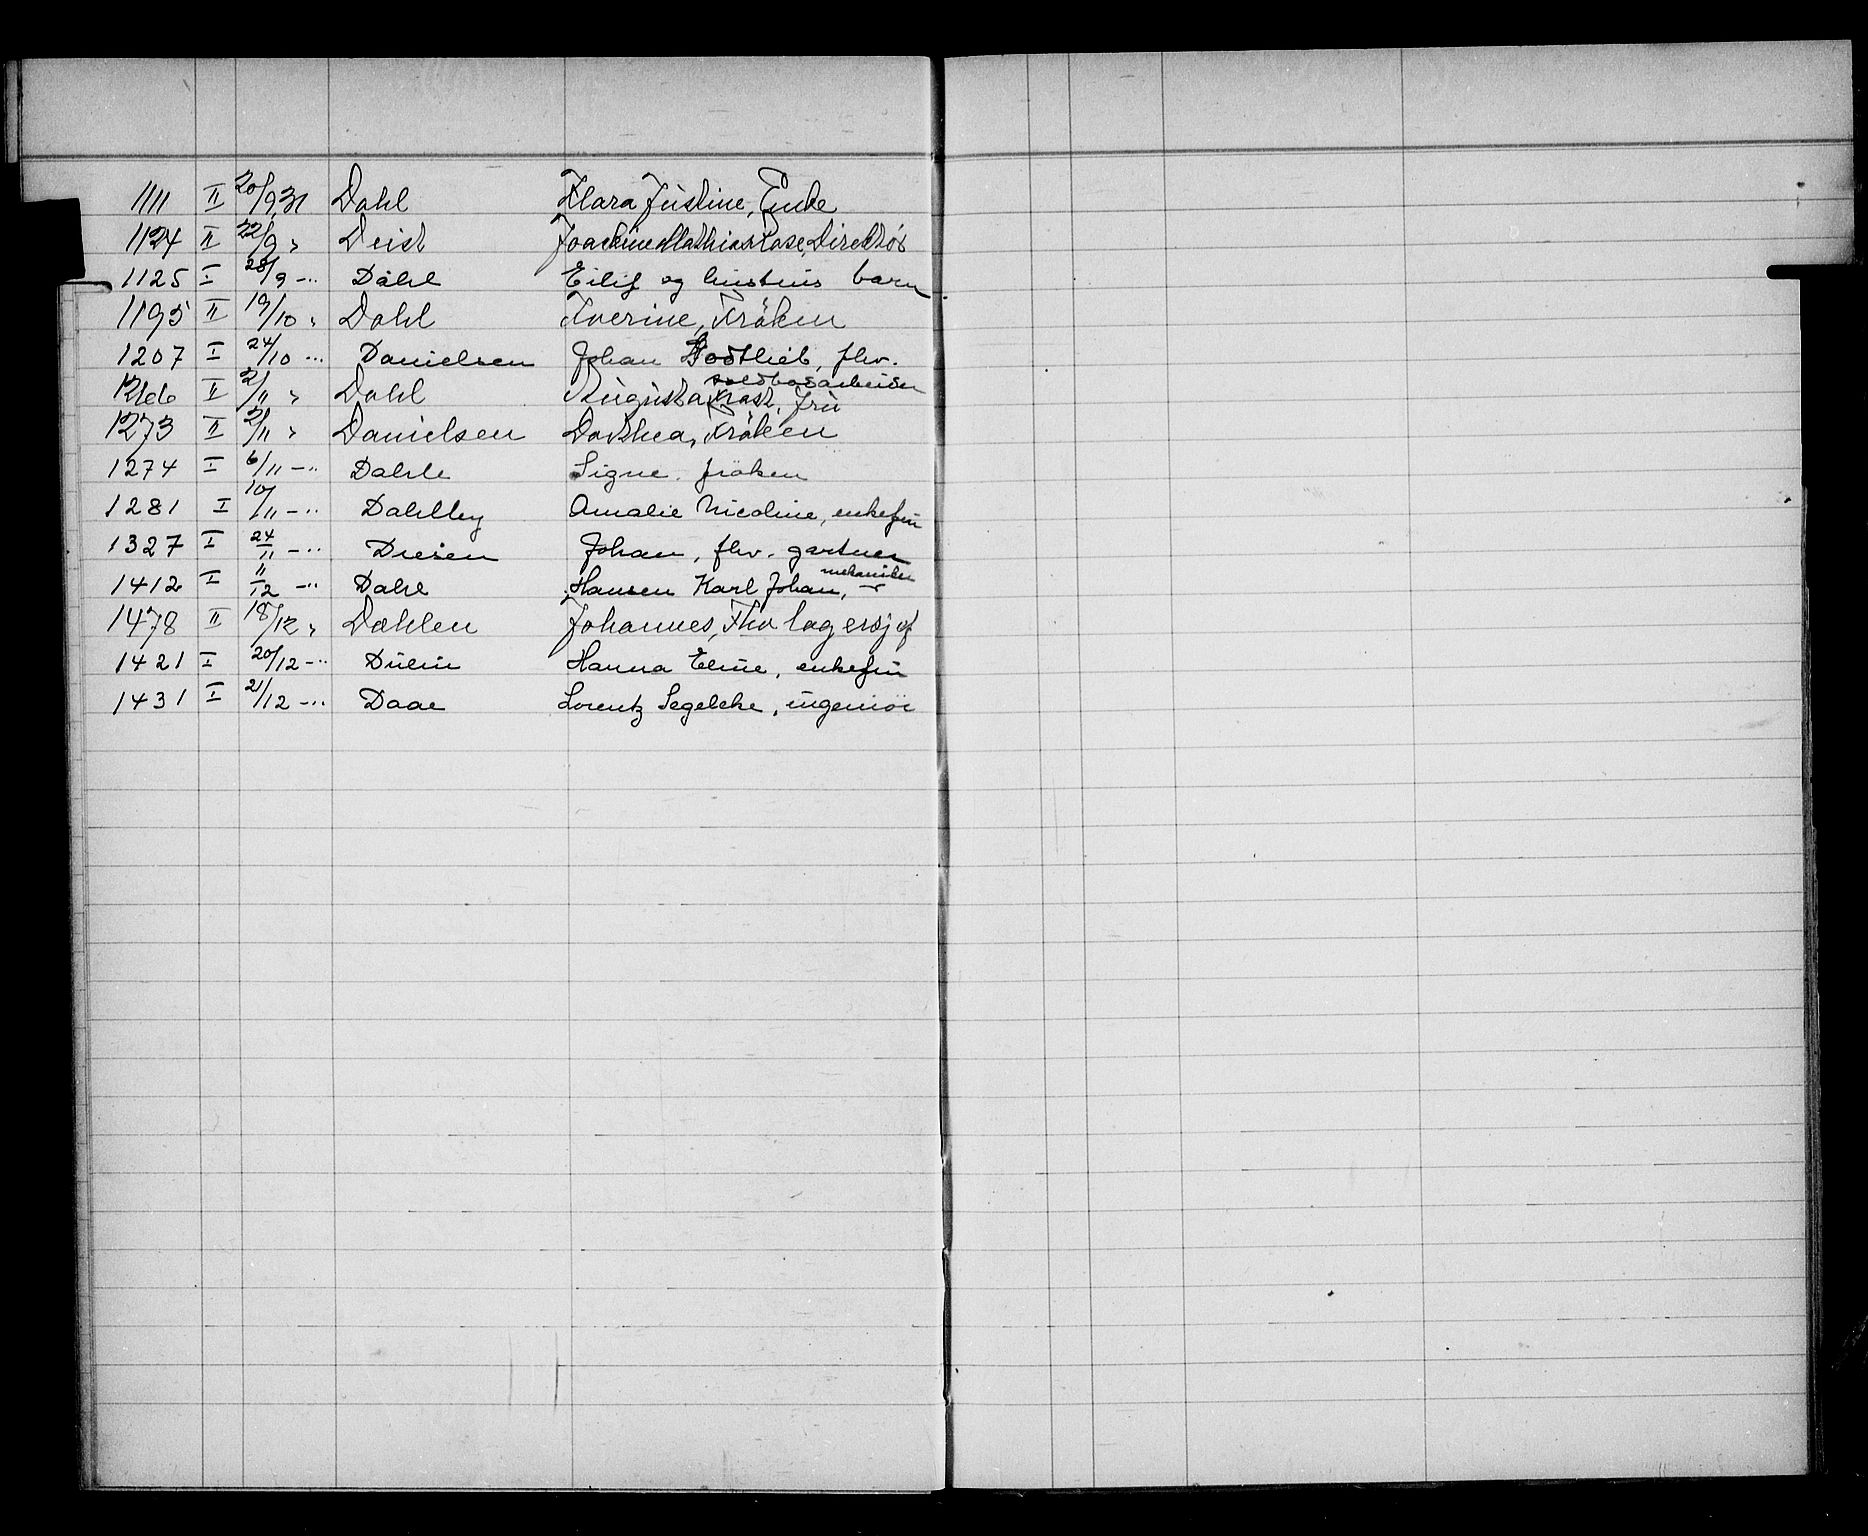 1111 II 20/9 31 Dahl Klara Justine, Enke
1124 II 22/9 " Deist Joachim Mathias, Direktör
1125 I 28/9 -" Dahl Eilif og hustrus barn
1195 II 19/10 " Dahl Iverine, Fröken
1207 I 24/10 -" Danielsen Johan Gottlieb, fhv.
arbeider
1266 II 2/11 " Dahl Augusta, Fru
1273 II 2/11 " Danielsen Dorthea, Fröken
1274 I 6/11 -" Dahle Signe, fröken
1281 I 10/11 -" Dahlby Amalie Nicoline, enkefru
1327 I 24/11 -" Diesen Johan, fhv. gartner
mekaniker
1412 I 11/12 -" Dahl Hansen Karl Johan,
1478 II 18/12 " Dæhlen Johannes, Fhv lagersjef
1421 I 20/12 -" Hanna Eline, enkefru
1431 I 21/12 -" Daae Lorentz Segelcke, ingeniör